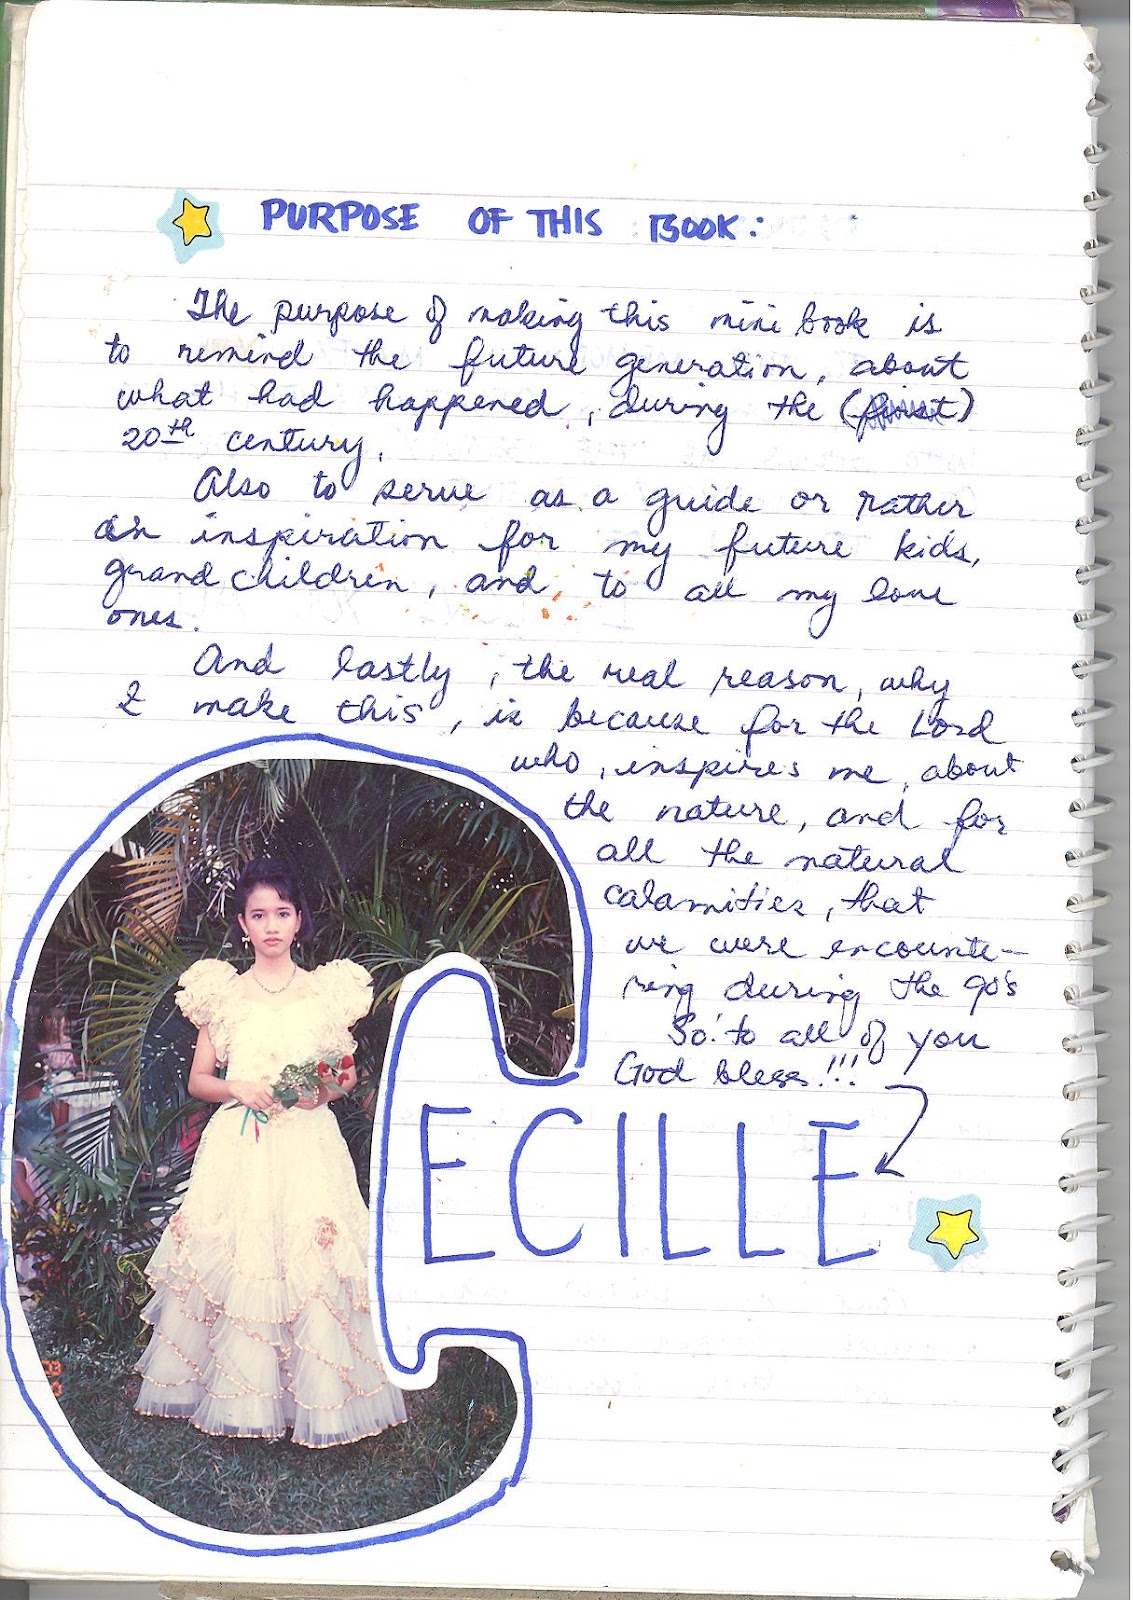 PURPOSE OF THIS BOOK:
The purpose of making this mini book is
to remind the future generation, about
what had happened, during the (first)
20th century.
Also to serve as a guide or rather
an inspiration for my future kids,
grand children, and, to all my love
ones.
And lastly, the real reason, why
I make this, is because for the Lord
who, inspires me, about
the nature, and for
all the natural
calamities, that
we were encounte-
ring during the 90's
So: to all of you
God bless!!!
CECILLE